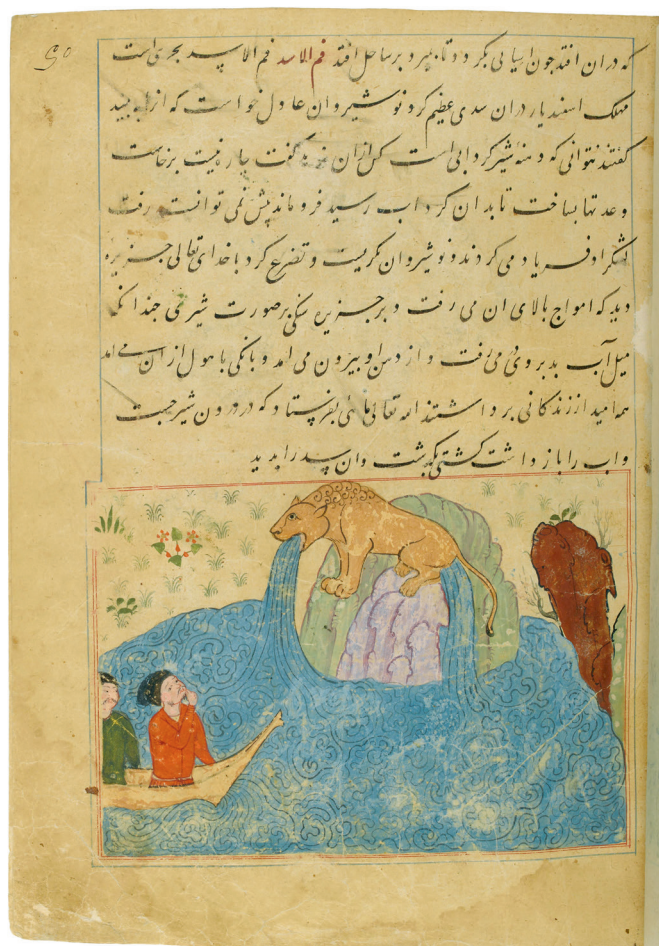 که دران افتد جون اسیایی بکردد تا بمیرد و برساحل افتد فم الاسد فم الاسد بحری است
مهلک اسفندیار دران سدی عظیم کرد نوشیروان عادل خواست که انرا ببیند
کفتند نتوانی که دهنه شیر کردابی است کس ازان نرهد کفت چاره نیست برخاست
وعدتها بساخت تا بدان کرداب رسید فرو ماند پیش نمی توانست رفت
لشکر او فریاد می کردند و نوشیروان بکریست و تضرع کرد با خدای تعالی جزیره
دید که امواج بالای ان می رفت و بر جزیره سنکی بر صورت شیری چندانک
میل آب بدبر وی می رفت و از دهن او بیرون می امد و بانکی با هول ازان می امد
همه امید از زندکانی برداشتند الله تعالی ماهی بفرستاد که در درون شیر جست
واب را باز داشت کشتی بکذشت وان سد را بدید